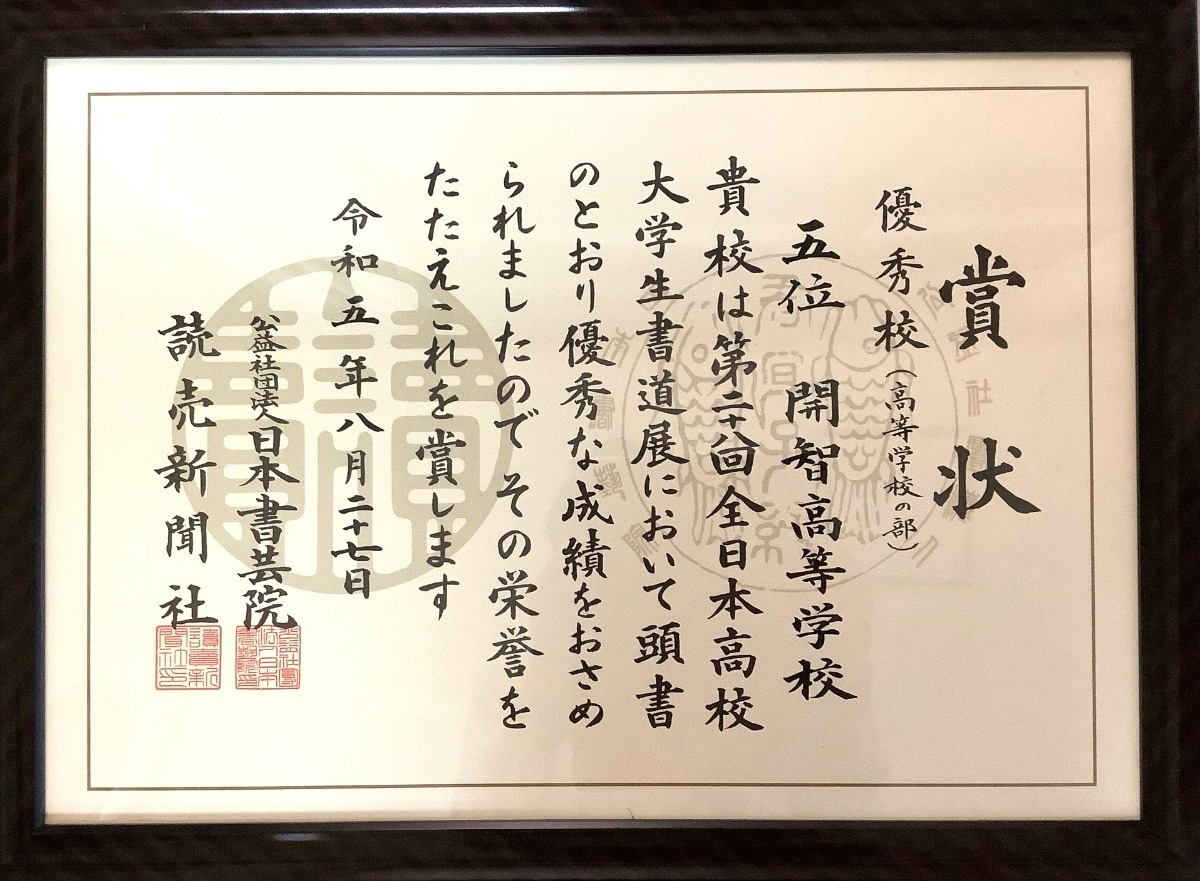 賞状
優秀校(高等学校の部)
五位 開智高等学校
貴校は第二十八回全日本高校
大学生書道展において頭書
のとおり優秀な成績をおさめ
られましたのでその栄誉を
たたえこれを賞します
令和五年八月二十七日
公益社団法人日本書芸院
読売新聞社